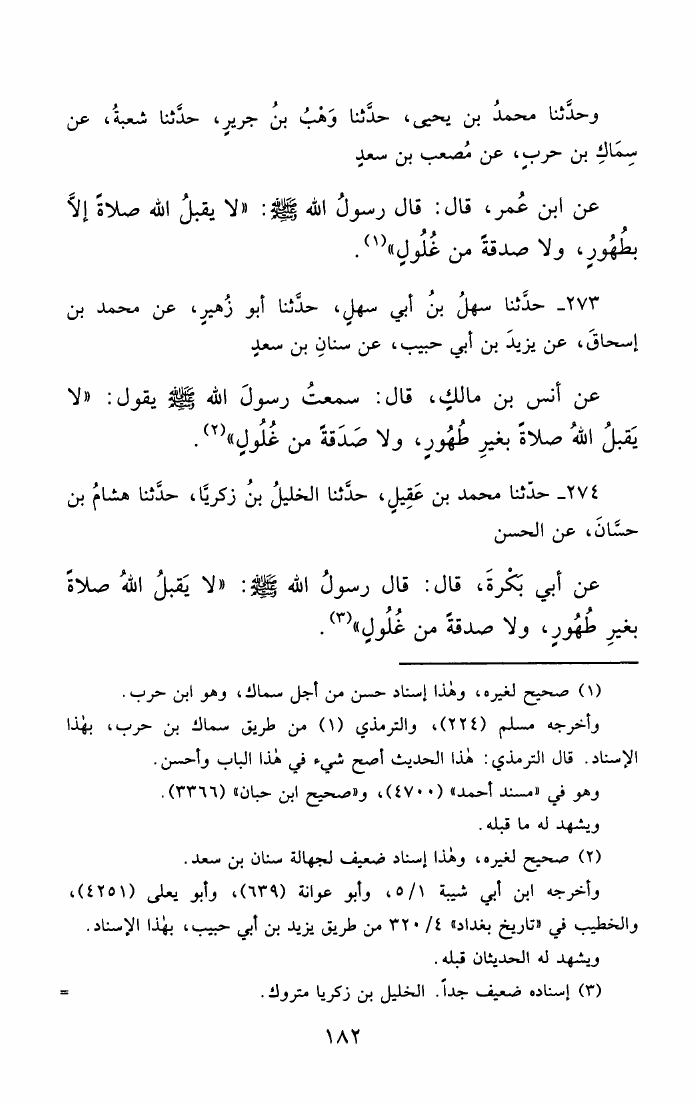 وحدَّثنا محمدُ بن يحيى، حدَّثنا وَهْبُ بنُ جريرٍ، حدَّثنا شعبةُ، عن
سِمَاكِ بن حربٍ، عن مُصعب بن سعدٍ
عن ابن عُمر، قال: قال رسولُ الله ﷺ: «لا يقبلُ الله صلاةً إلاَّ
بطُهُورٍ، ولا صدقةً من غُلُولٍ»(١).
٢٧٣ـ حدَّثنا سهلُ بنُ أبي سهلٍ، حدَّثنا أبو زُهيرٍ، عن محمد بن
إسحاقَ، عن يزيدَ بن أبي حبيب، عن سنانِ بن سعدٍ
عن أنس بن مالكٍ، قال: سمعتُ رسولَ الله ﷺ يقول: «لا
يَقبلُ اللهُ صلاةً بغيرِ طُهُورٍ، ولا صَدَقةً من غُلُولٍ»(٢).
٢٧٤ـ حدّثنا محمد بن عَقِيلٍ، حدَّثنا الخليلُ بنُ زكريَّا، حدَّثنا هشامُ بن
حسَّانَ، عن الحسن
عن أبي بَكْرةَ، قال: قال رسولُ الله ﷺ: «لا يَقبلُ اللهُ صلاةً
بغيرِ طُهُورٍ، ولا صدقةً من غُلُولٍ»(٣).
(١) صحيح لغيره، وهٰذا إسناد حسن من أجل سماك، وهو ابن حرب.
وأخرجه مسلم (٢٢٤)، والترمذي (١) من طريق سماك بن حرب، بهٰذا
الإسناد. قال الترمذي: هٰذا الحديث أصح شيء في هٰذا الباب وأحسن.
وهو في «مسند أحمد» (٤٧٠٠)، و«صحيح ابن حبان» (٣٣٦٦).
ويشهد له ما قبله.
(٢) صحيح لغيره، وهٰذا إسناد ضعيف لجهالة سنان بن سعد.
وأخرجه ابن أبي شيبة ٥/١، وأبو عوانة (٦٣٩)، وأبو يعلى (٤٢٥١)،
والخطيب في «تاريخ بغداد» ٣٢٠/٤ من طريق يزيد بن أبي حبيب، بهٰذا الإسناد.
ويشهد له الحديثان قبله.
(٣) إسناده ضعيف جداً. الخليل بن زكريا متروك. =
١٨٢